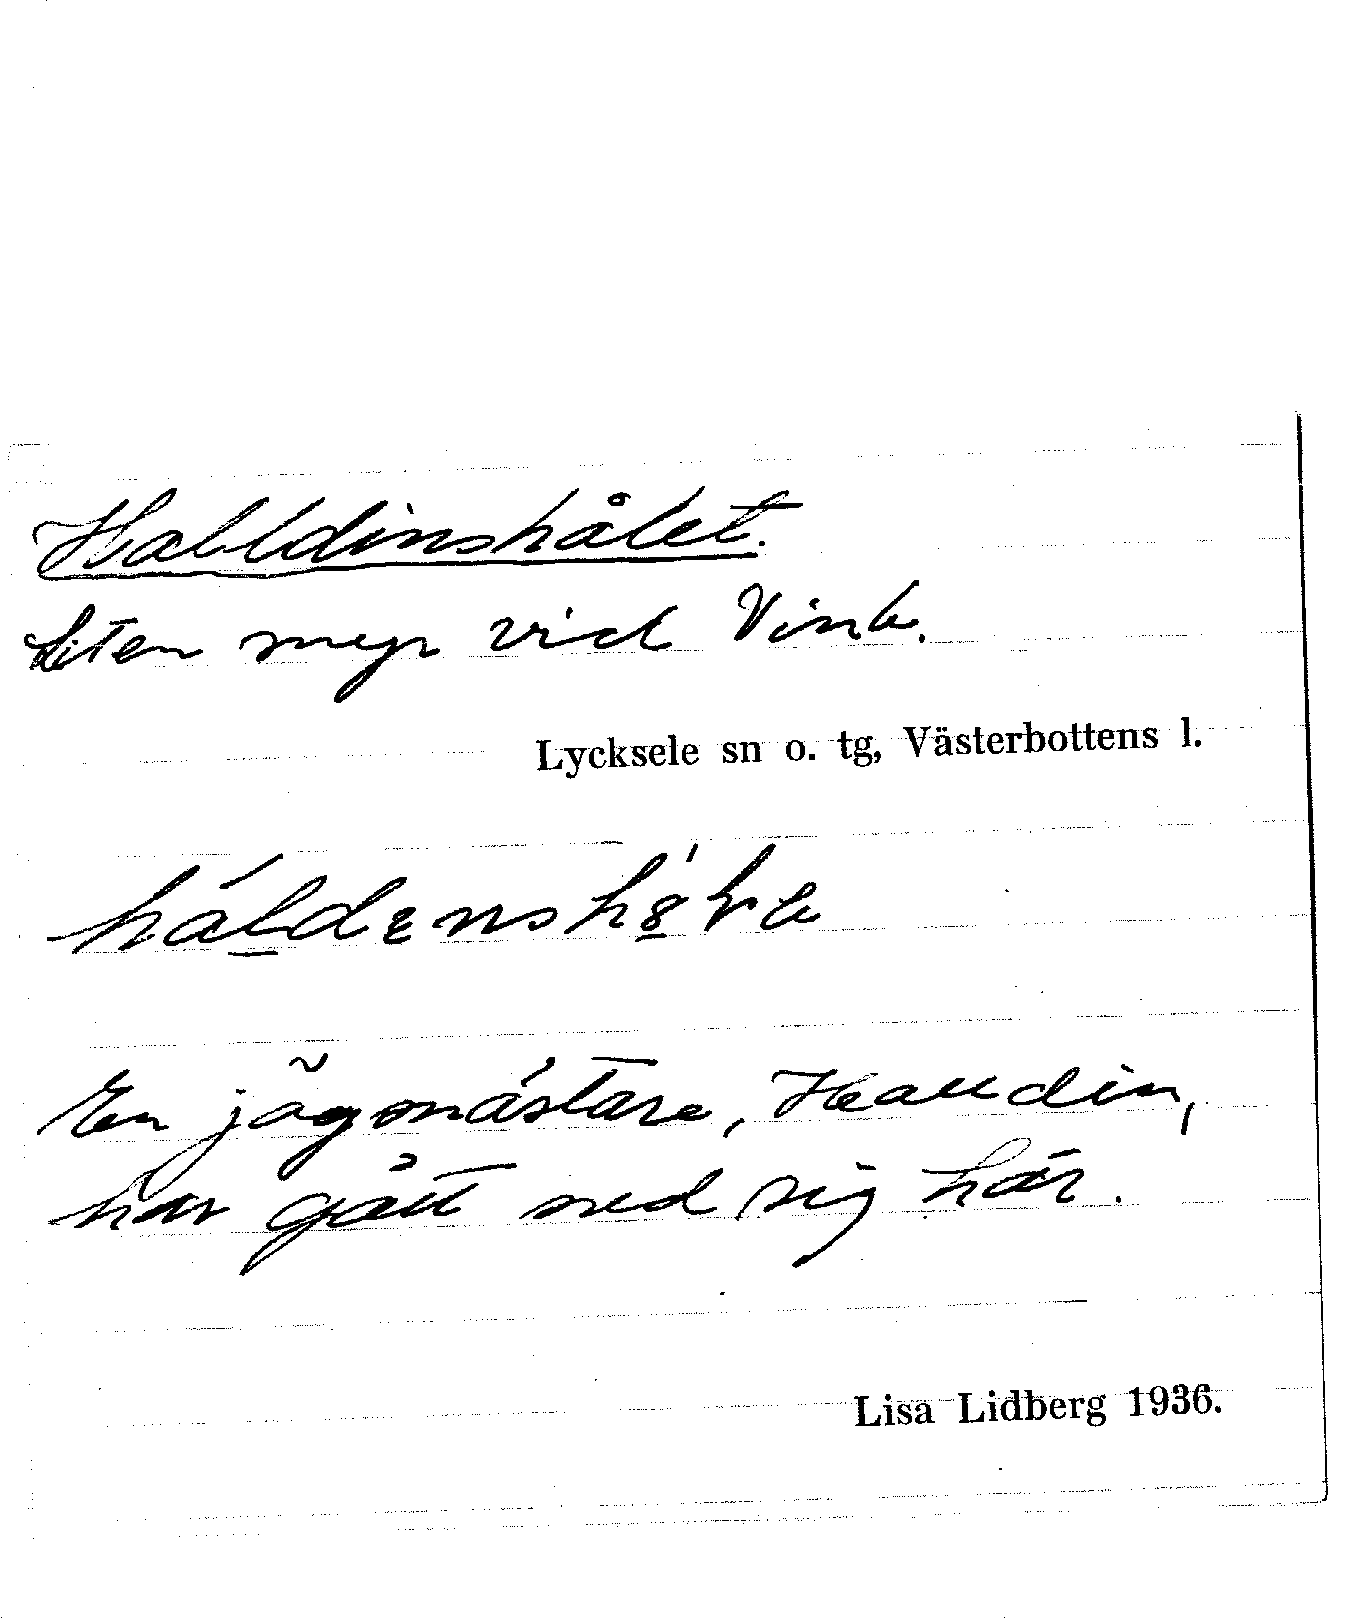 Halldinshålet.
Liten myr vid Vink.
Lycksele sn o. tg, Västerbottens l.
En jägmästare, Halldin,
har gått ned sig här.
Lisa Lidberg 1936.